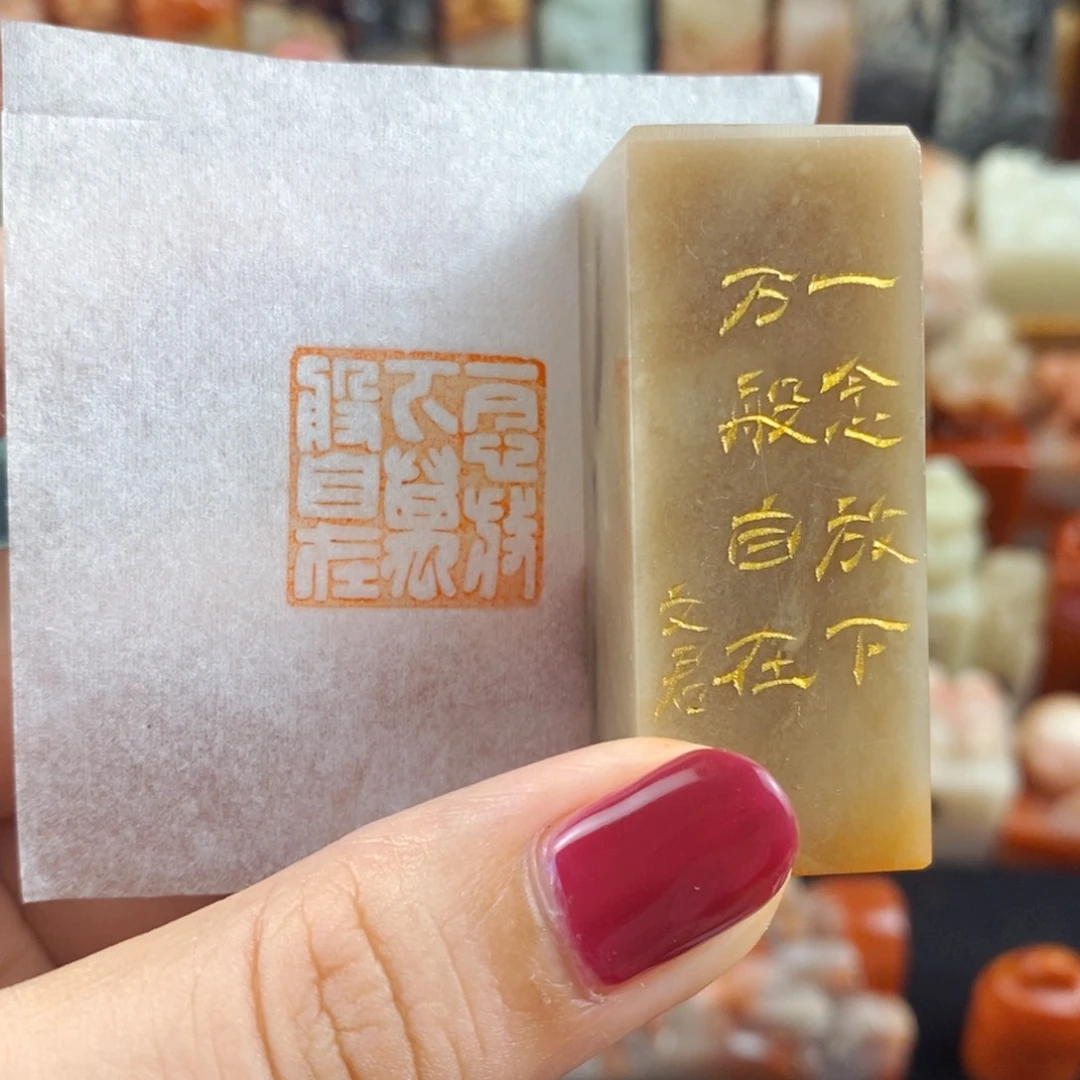 一念放下
万般自在
文君
一念放
下萬
般自在